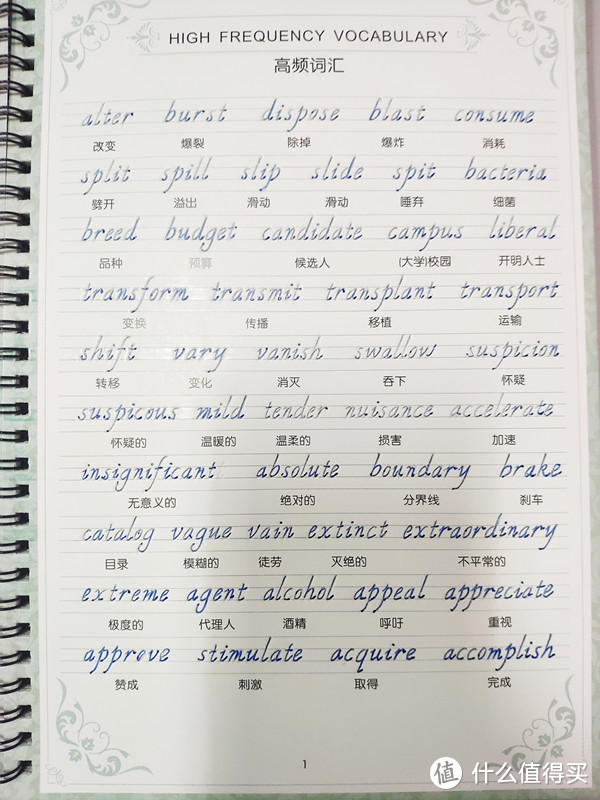 HIGH FREQUENCY VOCABULARY
高频词汇
alter burst dispose blast consume
改变 爆裂 除掉 爆炸 消耗
split spill slip slide spit bacteria
劈开 溢出 滑动 滑动 唾弃 细菌
breed budget candidate campus liberal
品种 预算 候选人 (大学)校园 开明人士
transform transmit transplant transport
变换 传播 移植 运输
shift vary vanish swallow suspicion
转移 变化 消灭 吞下 怀疑
suspicous mild tender nuisance accelerate
怀疑的 温暖的 温柔的 损害 加速
insignificant absolute boundary brake
无意义的 绝对的 分界线 刹车
catalog vague vain extinct extraordinary
目录 模糊的 徒劳 灭绝的 不平常的
extreme agent alcohol appeal appreciate
极度的 代理人 酒精 呼吁 重视
approve stimulate acquire accomplish
赞成 刺激 取得 完成
1
值 什么值得买